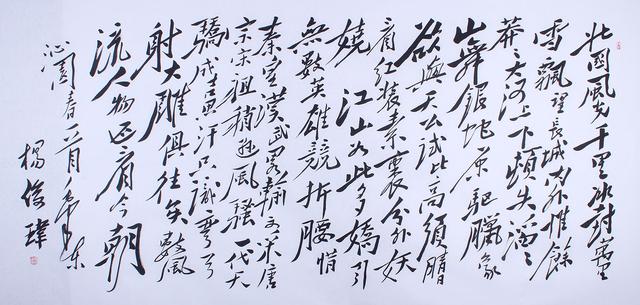 北国風光千里冰封萬里
雪飄望長城内外惟餘
莽々大河上下頓失滔々
山舞銀蛇原驰臘象
欲與天公試比高須晴
看红装素裹分外妖
嬈江山如此多嬌引
無數英雄競折腰惜
秦皇漢武略輸文采唐
宗宋祖稍遜風騷一代天
驕成吉思汗只識彎弓
射大雕俱往矣數風
流人物还看今朝
沁園春
楊俊